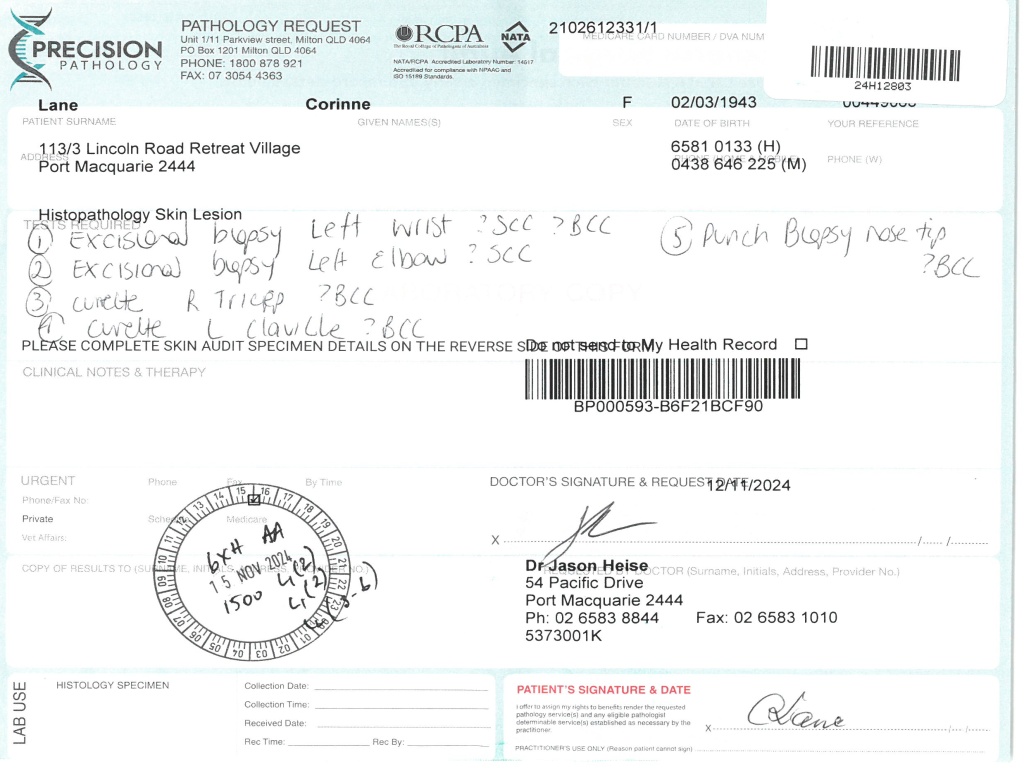 PRECISION
PATHOLOGY
PATHOLOGY REQUEST
Unit 1/11 Parkview street, Milton QLD 4064
PO Box 1201 Milton QLD 4064
PHONE: 1800 878 921
FAX: 07 3054 4363
RCPA
The Royal College of Pathologists of Australasia
NATA
NATA/RCPA Accredited Laboratory Number: 14017
Accredited for compliance with NPAAC and
ISO 15189 Standards.
2102612331/1
MEDICARE CARD NUMBER / DVA NUM
24H12803
Lane Corinne F 02/03/1943
PATIENT SURNAME GIVEN NAMES(S) SEX DATE OF BIRTH YOUR REFERENCE
113/3 Lincoln Road Retreat Village 6581 0133 (H)
ADDRESS PHONE (W)
Port Macquarie 2444 0438 646 225 (M)
Histopathology Skin Lesion
TESTS REQUIRED
① Excisional biopsy Left wrist ?SCC ?BCC
② Excisional biopsy Left Elbow ?SCC
③ curette R Tricep ?BCC
④ curette L Claville ?BCC
⑤ Punch Biopsy nose tip
?BCC
PLEASE COMPLETE SKIN AUDIT SPECIMEN DETAILS ON THE REVERSE SIDE OF THIS FORM
Do not send to My Health Record
CLINICAL NOTES & THERAPY
BP000593-B6F21BCF90
URGENT Phone Fax By Time
Phone/Fax No:
Private Schedule Medicare
Vet Affairs:
DOCTOR'S SIGNATURE & REQUEST DATE
12/11/2024
X / /
COPY OF RESULTS TO (SURNAME, INITIALS, ADDRESS, PROVIDER NO.)
15 NOV 2024
1500
AA
REQUESTED BY DOCTOR (Surname, Initials, Address, Provider No.)
Dr Jason Heise
54 Pacific Drive
Port Macquarie 2444
Ph: 02 6583 8844 Fax: 02 6583 1010
5373001K
LAB USE
HISTOLOGY SPECIMEN
Collection Date:
Collection Time:
Received Date:
Rec Time: Rec By:
PATIENT'S SIGNATURE & DATE
I offer to assign my rights to benefits render the requested
pathology service(s) and any eligible pathologist
determinable service(s) established as necessary by the
practitioner.
X CLane / /
PRACTITIONER'S USE ONLY (Reason patient cannot sign)